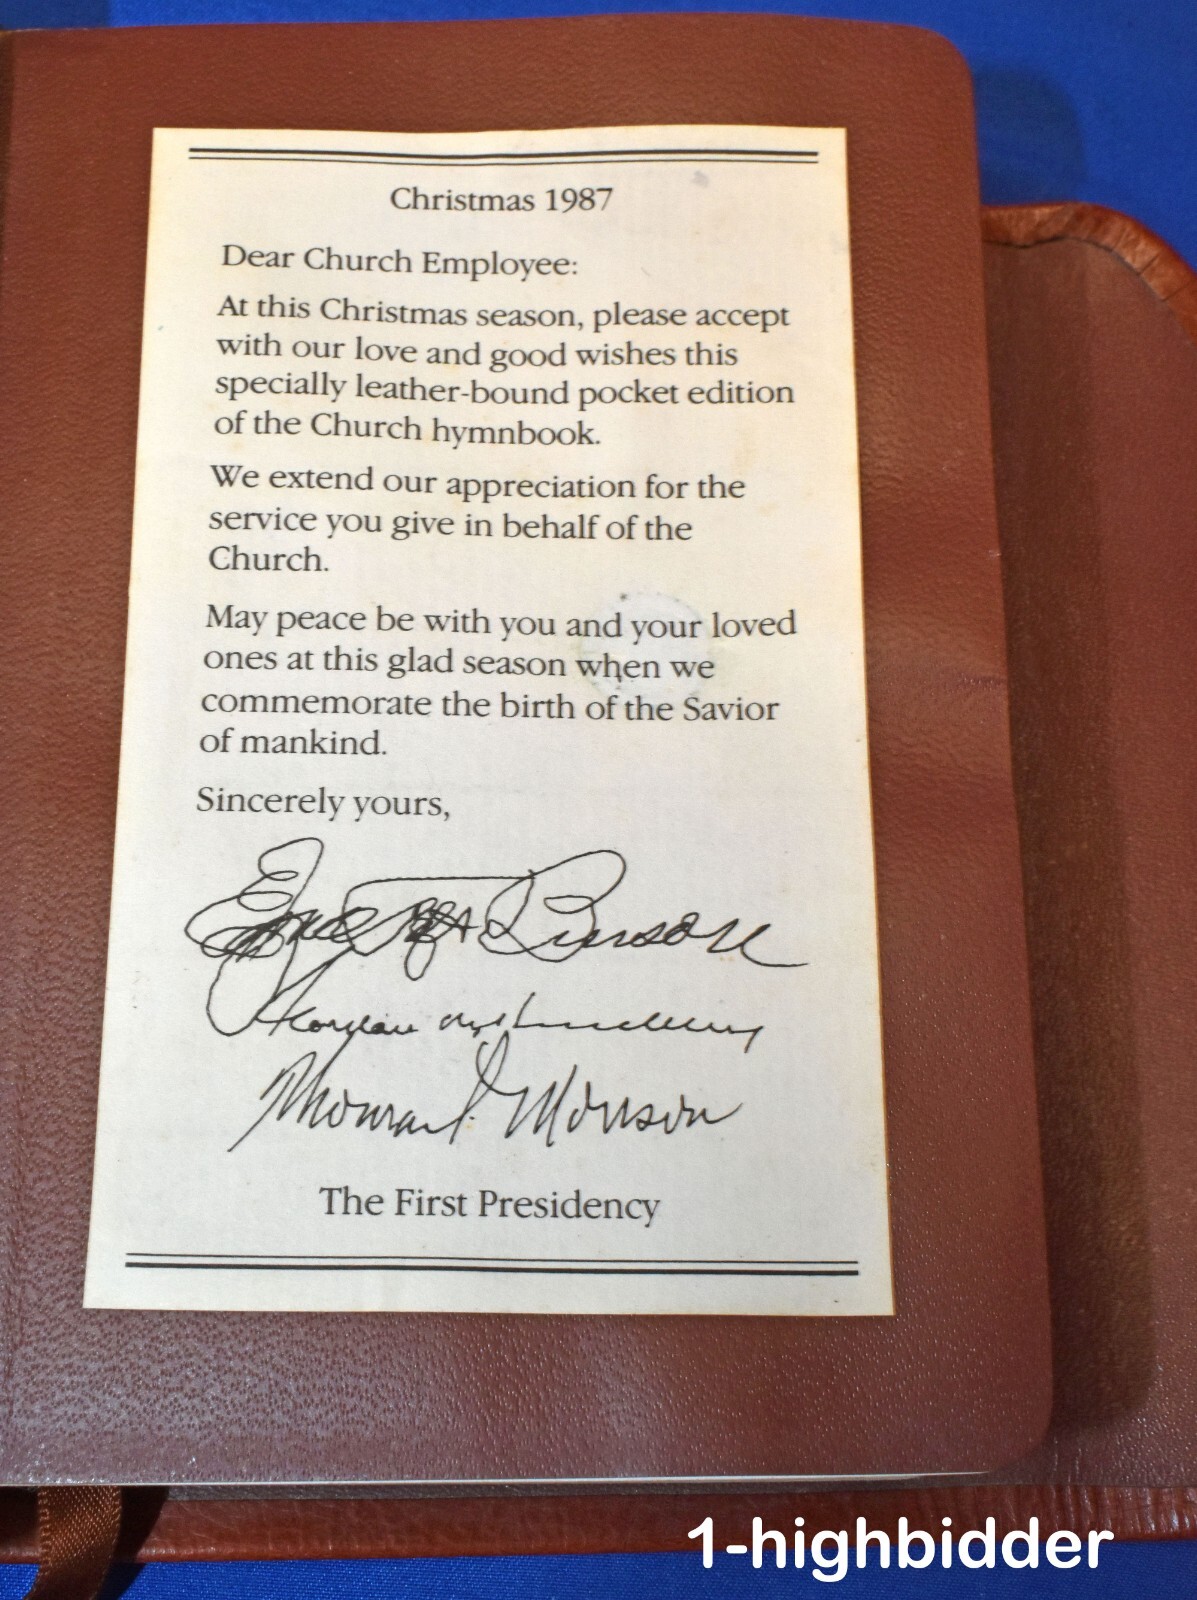 Christmas 1987
Dear Church Employee:
At this Christmas season, please accept
with our love and good wishes this
specially leather-bound pocket edition
of the Church hymnbook.
We extend our appreciation for the
service you give in behalf of the
Church.
May peace be with you and your loved
ones at this glad season when we
commemorate the birth of the Savior
of mankind.
Sincerely yours,
Benson
Monson
The First Presidency
1-highbidder